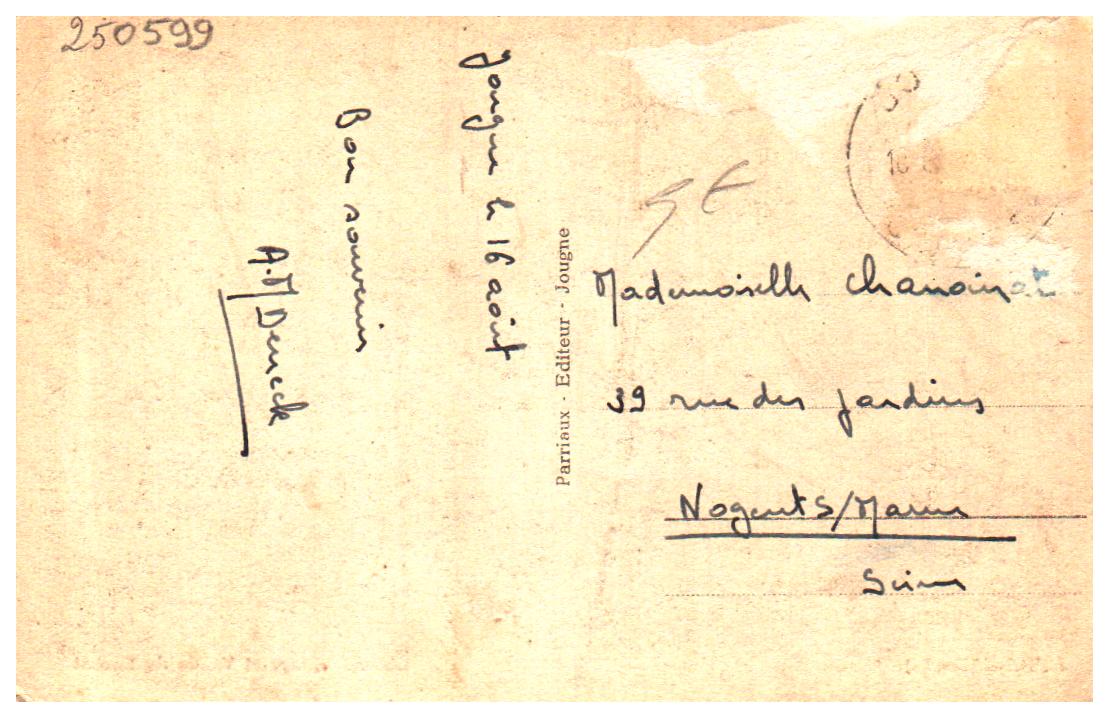 250599
Jougne le 16 août
Bon souvenir
A.M Deneck
Parriaux - Editeur - Jougne
5 €
Mademoiselle Chanoinat
39 rue des jardins
Nogent S/Marne
Seine